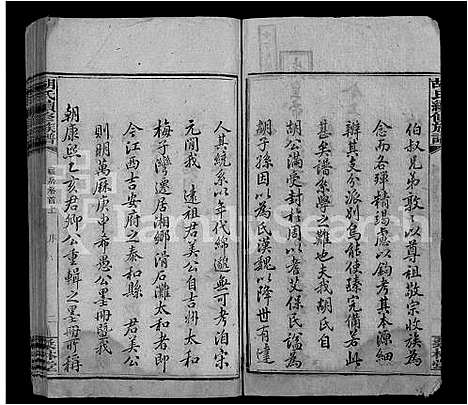 胡氏續修族譜
伯叔兄弟敢了以尊祖敬宗收族為
念而各殫精竭慮以鈎考其
辦其支分派別烏能使臻完備若此
甚矣譜系學之難也夫我胡氏自
胡公滿受封於周以耆艾保民諡為
胡子孫因以為氏漢魏以降世有達
人其統系以年代綿邈無可考洎宋
元間我 遠祖君美公自吉州太和
梅子灣遷居湘鄉滑石灘太和者即
今江西吉安府之泰和縣 君美公
則明萬厤庚申希愚公墨冊暨我
朝康熙乙亥君卿公重輯之墨冊所稱
胡氏續修族譜
卷首上
序